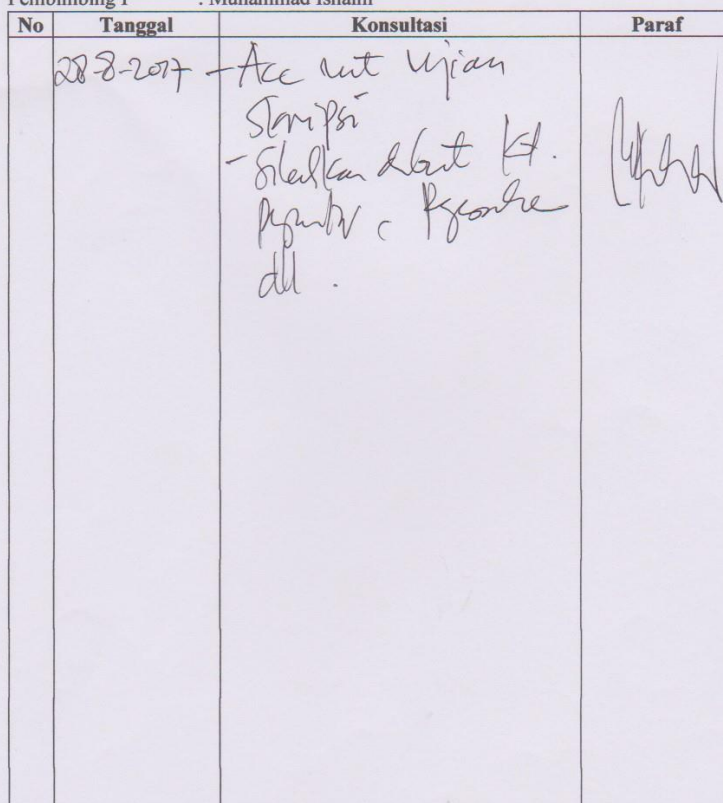 Pembimbing I : Muhammad Ishami
No Tanggal Konsultasi Paraf
28-8-2017 - Acc unt Ujian
Skripsi
- Silahkan dibuat Kt.
dll.